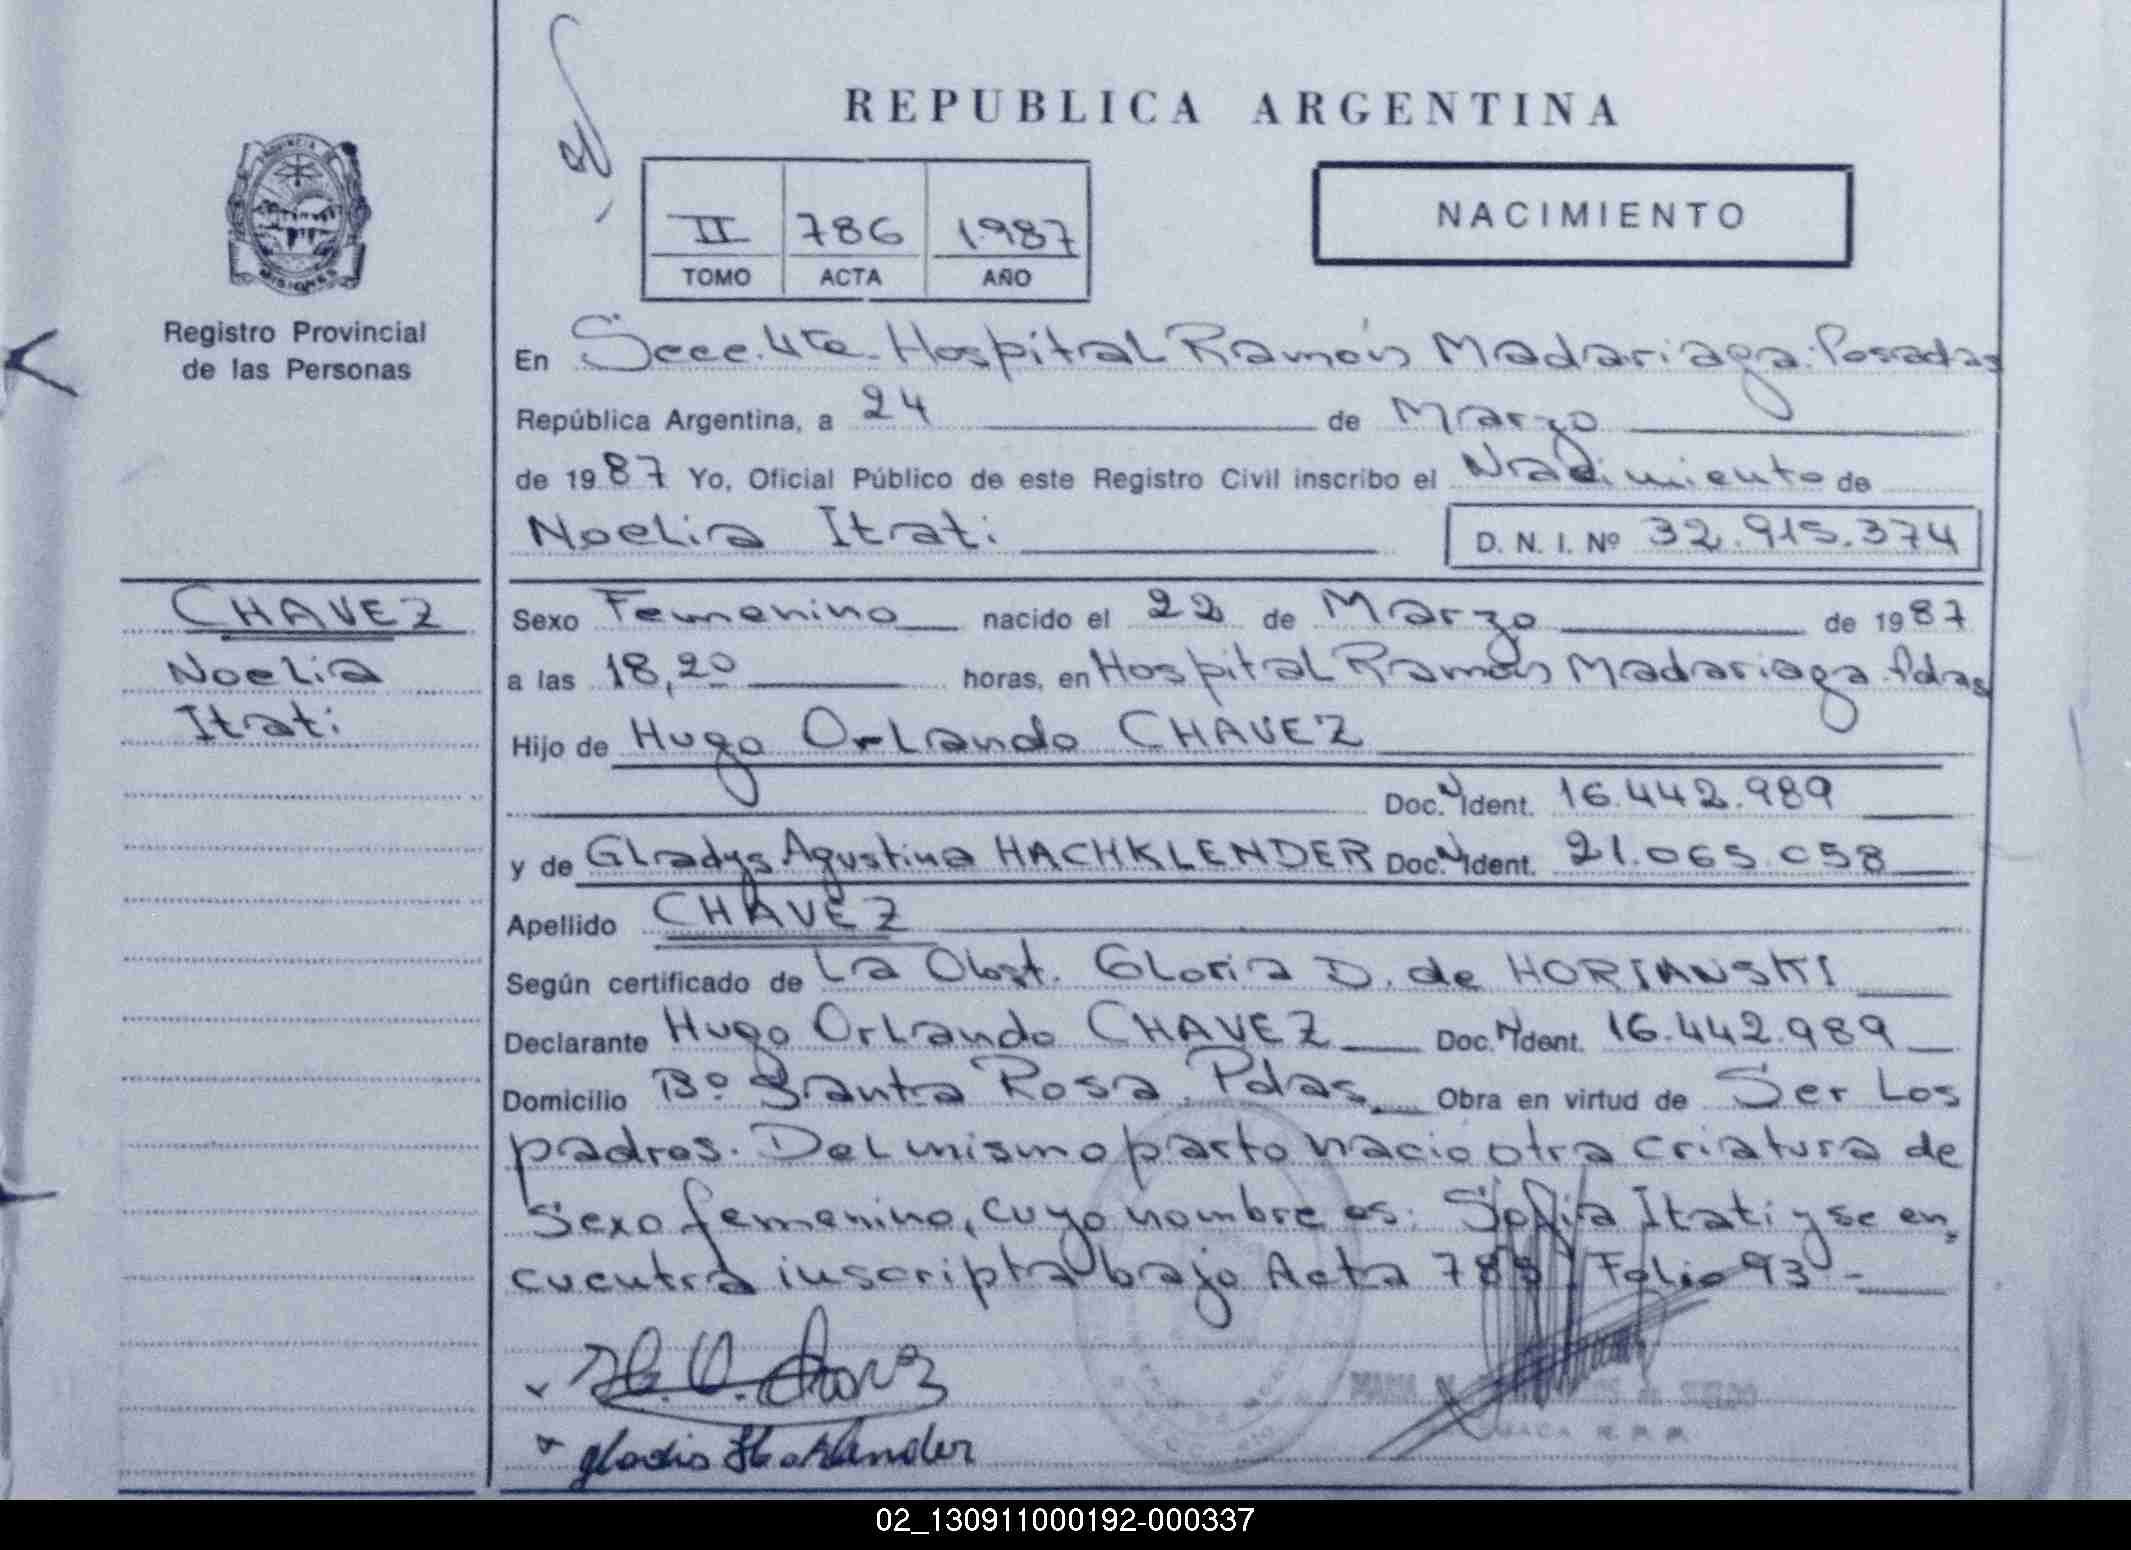 REPUBLICA ARGENTINA
II 786 1987
TOMO ACTA AÑO
NACIMIENTO
Registro Provincial
de las Personas
En Secc. 4ta. Hospital Ramón Madariaga. Posadas
República Argentina, a 24 de Marzo
de 1987 Yo, Oficial Público de este Registro Civil inscribo el Nacimiento de
Noelia Itati
D. N. I. Nº 32.915.374
CHAVEZ
Noelia
Itati
Sexo Femenino nacido el 22 de Marzo de 1987
a las 18,20 horas, en Hospital Ramón Madariaga. Pdas
Hijo de Hugo Orlando CHAVEZ
Doc. N Ident. 16.442.989
y de Gladys Agustina HACHKLENDER Doc. N Ident. 21.065.058
Apellido CHAVEZ
Según certificado de La Obst. Gloria D. de HORIANSKI
Declarante Hugo Orlando CHAVEZ Doc. N Ident. 16.442.989
Domicilio Bº Santa Rosa. Pdas. Obra en virtud de Ser Los
padres. Del mismo parto nacio otra criatura de
Sexo femenino, cuyo nombre es: Sofia Itati y se en
cuentra inscripta bajo Acta Folio 93 -
H. O. Chavez
02_130911000192-000337